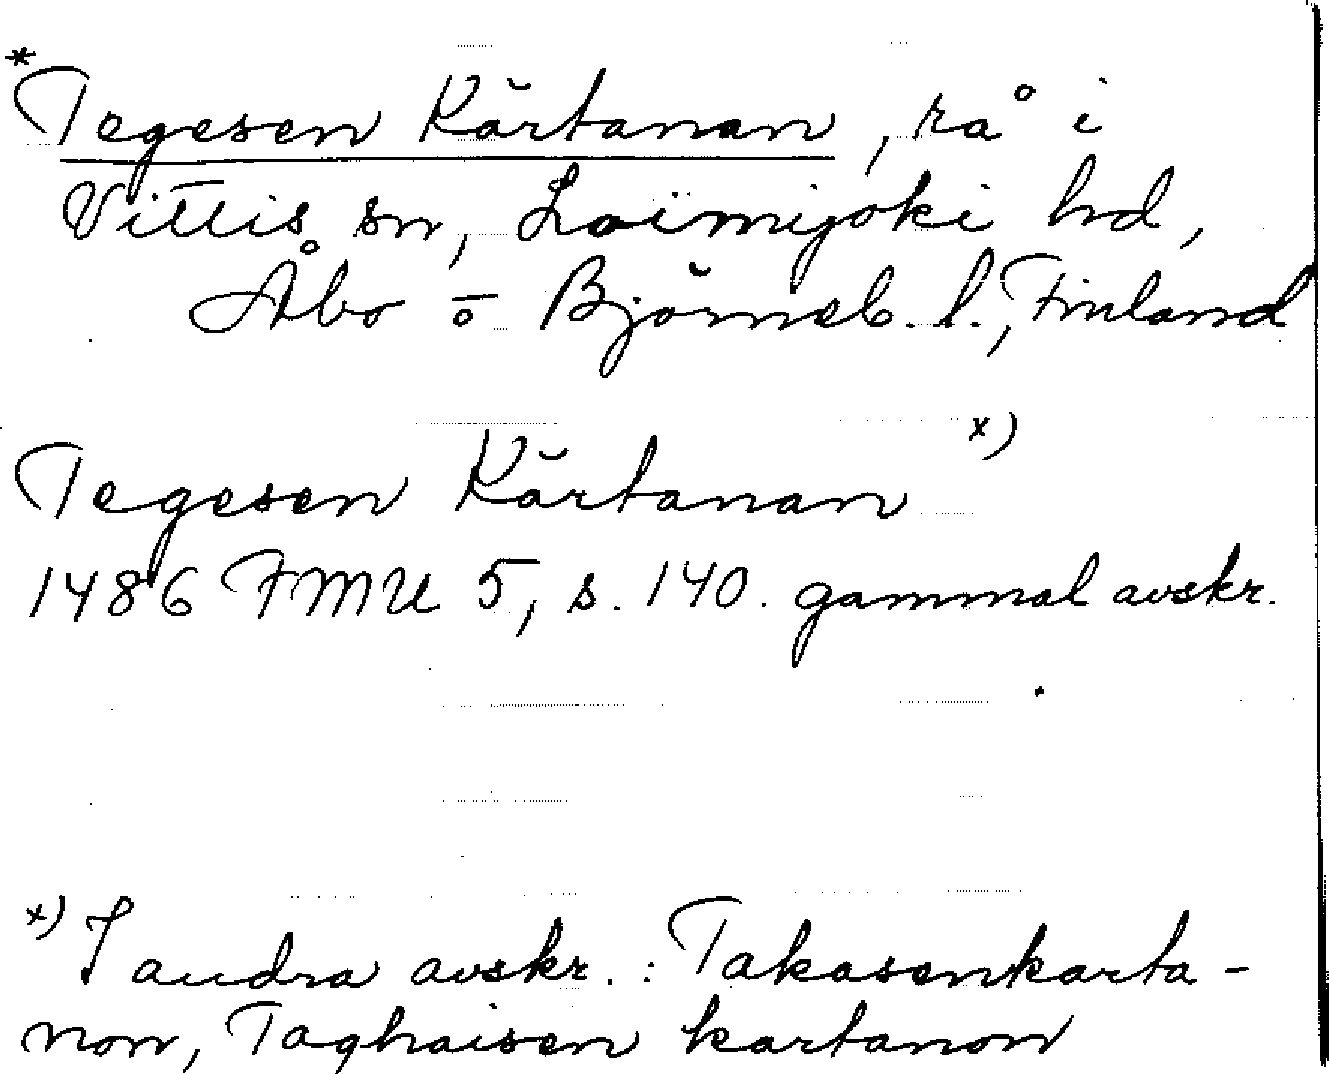 * Tegesen Kårtanan, rå i
Vittis sn, Loimijoki hd,
Åbo o Björneb. l., Finland
Tegesen Kårtanan x)
1486 FMU 5, s. 140. gammal avskr.
x) I andra avskr. : Takasenkarta-
non, Taghaisen kartanon